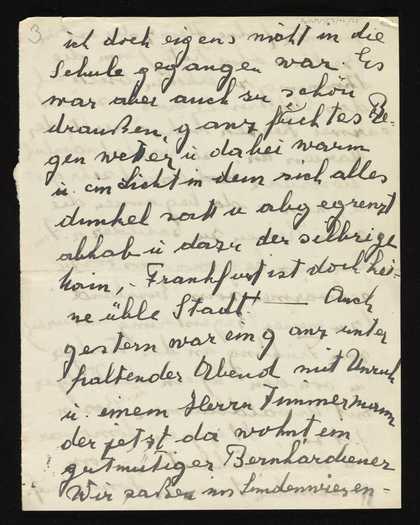 3
ich doch eigens nicht in die
Schule gegangen war. Es
war aber auch zu schön
draußen, ganz feuchtes Re-
gen wetter, u dabei warm
u. ein Licht in dem sich alles
dunkel satt u abgegrenzt
abhob u dazu der silbrige
Main, - Frankfurt ist doch kei-
ne üble Stadt! — Auch
gestern war ein ganz unter
haltender Abend mit Unruh
u. einem Herrn Timmermann
der jetzt da wohnt ein
gutmütiger Bernhardiener
Wir saßen im Lindenwiesen -